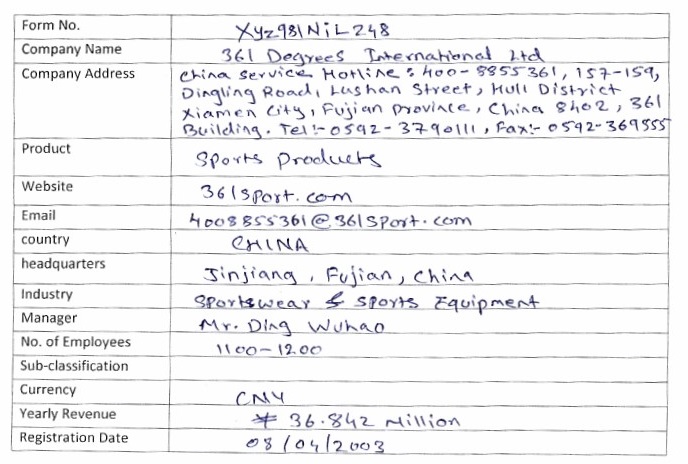 Form No. Xyz981NiL248
Company Name 361 Degrees International Ltd
Company Address China Service Hotline : 400-8855361, 157-159,
Dingling Road, Lushan Street, Hull District
Xiamen City, Fujian Province, China 8402, 361
Building. Tel:- 0592-3790111, Fax:- 0592-369555
Product Sports Products
Website 361sport.com
Email 4008855361@361sport.com
country CHINA
headquarters Jinjiang, Fujian, China
Industry Sportswear & Sports Equipment
Manager Mr. Ding Wuhao
No. of Employees 1100-1200
Sub-classification
Currency CNY
Yearly Revenue ¥ 36.842 Million
Registration Date 08/04/2003